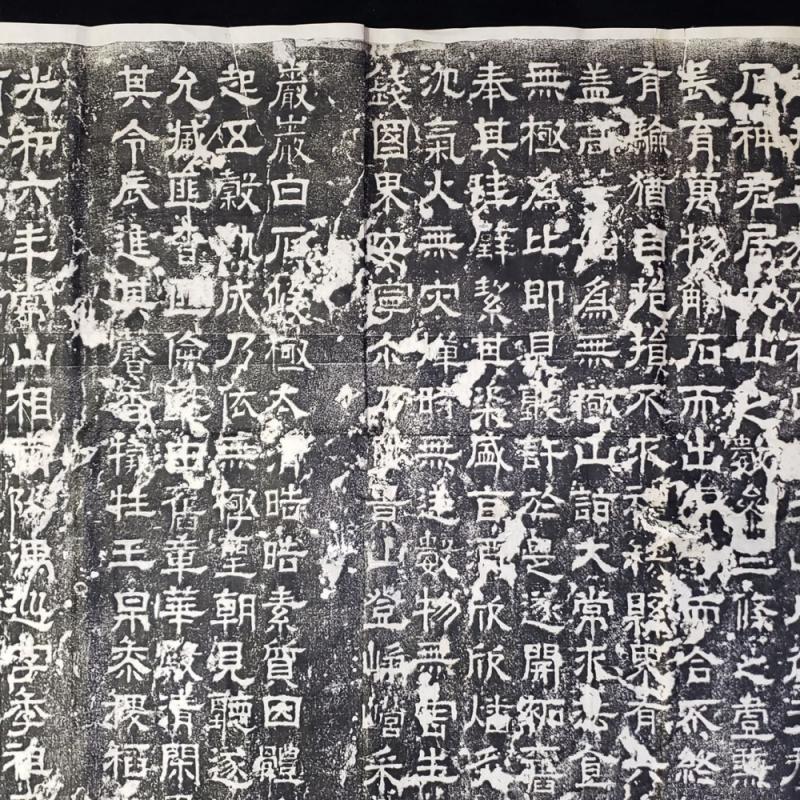 石神君居九山之數參三條之壹兼
長育萬物觸石而出膚寸而合不終
有驗猶自挹損不求禮秩縣界有六
盖高等始為無極山詣大常求法食
無極為比即見聽許於是遂開拓舊
奉其珪璧絜其粢盛旨酒欣欣燔炙
沴氣火無灾燀時無逆數物無害生
錢國界安寧尒乃陟景山登崢嶸采
巖巖白石峻極太清皓皓素質因體
起五穀熟成乃依無極聖朝見聽遂
允臧匪奢匪儉率由舊章華殿清閑
其令辰進其馨香犧牲玉帛黍稷稻
光和六年常山相南陽馮巡字季祖